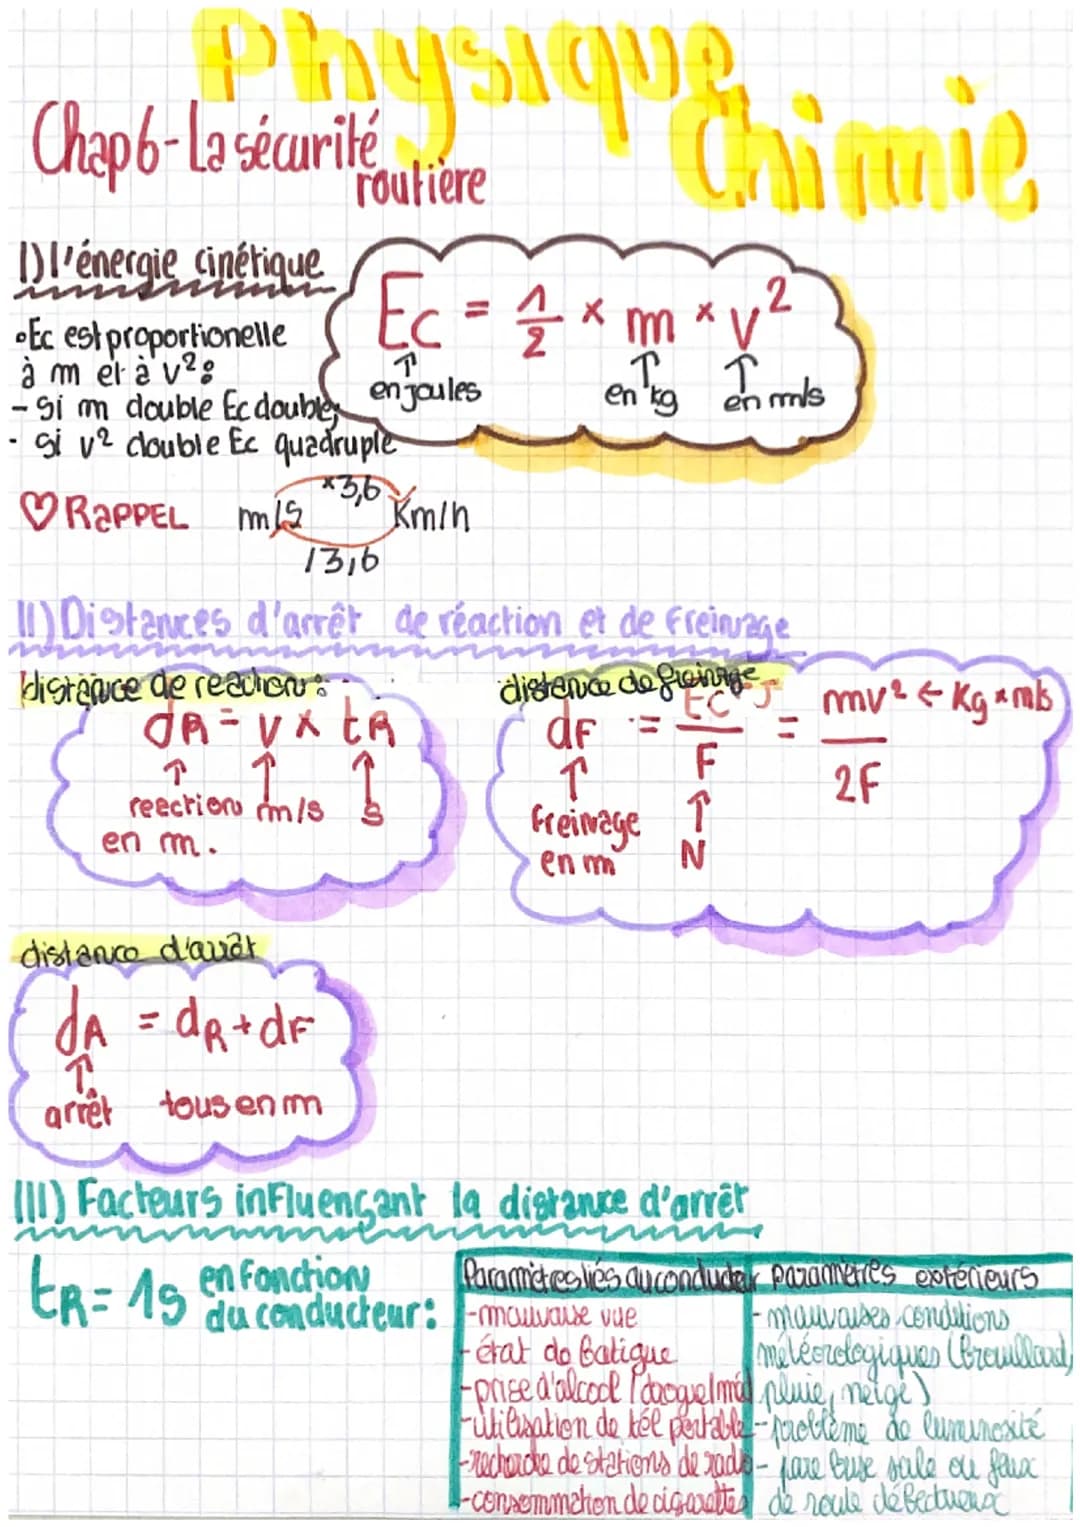 Physique
Chimie
Chap 6 - La sécurité
routière
I) l'énergie cinétique
Ec = 1/2 × m × v²
↑ en joules ↑ en kg ↑ en m/s
•Ec est proportionelle
à m et à v² :
- si m double Ec double;
- si v² double Ec quadruple
♡ RAPPEL m/s ×3,6 Km/h
/3,6
II) Distances d'arrêt de réaction et de freinage
distance de reaction :
dR = v x tR
↑ ↑ ↑
reection m/s s
en m.
distance de freinage
dF = Ec J / F = mv² ← Kg × m/s / 2F
↑ ↑
freinage
en m N
distance d'arrêt
dA = dR + dF
↑
arrêt tous en m
III) Facteurs influençant la distance d'arrêt
tR = 1s en fonction
du conducteur :
Paramètres liés au conducteur
- mauvaise vue
- état de fatigue
- prise d'alcool / drogue / méd
- utilisation de tél portable
- recherche de stations de radio
- consommation de cigarettes
paramètres extérieurs
- mauvaises conditions
météorologiques (brouillard,
pluie, neige)
- problème de luminosité
- pare brise sale ou feux
de route défectueux